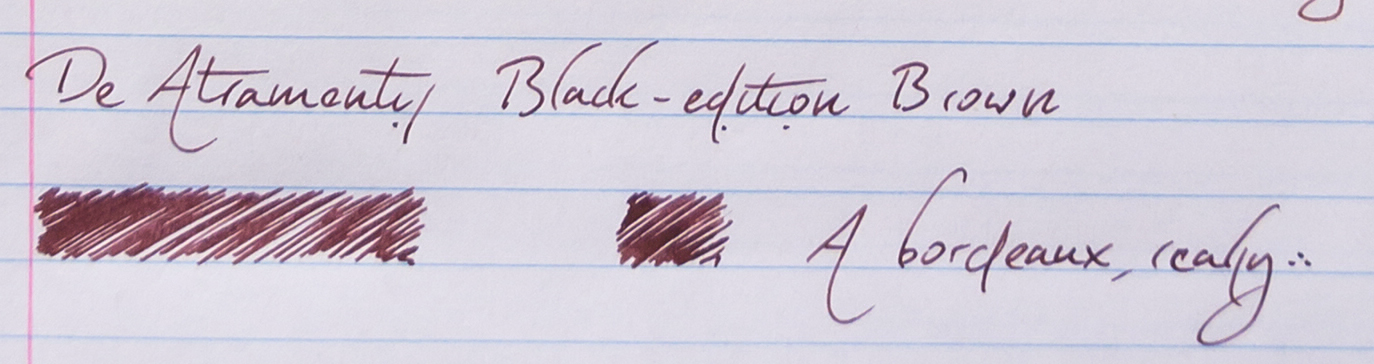 De Atramentis Black-edition Brown
A bordeaux, really...